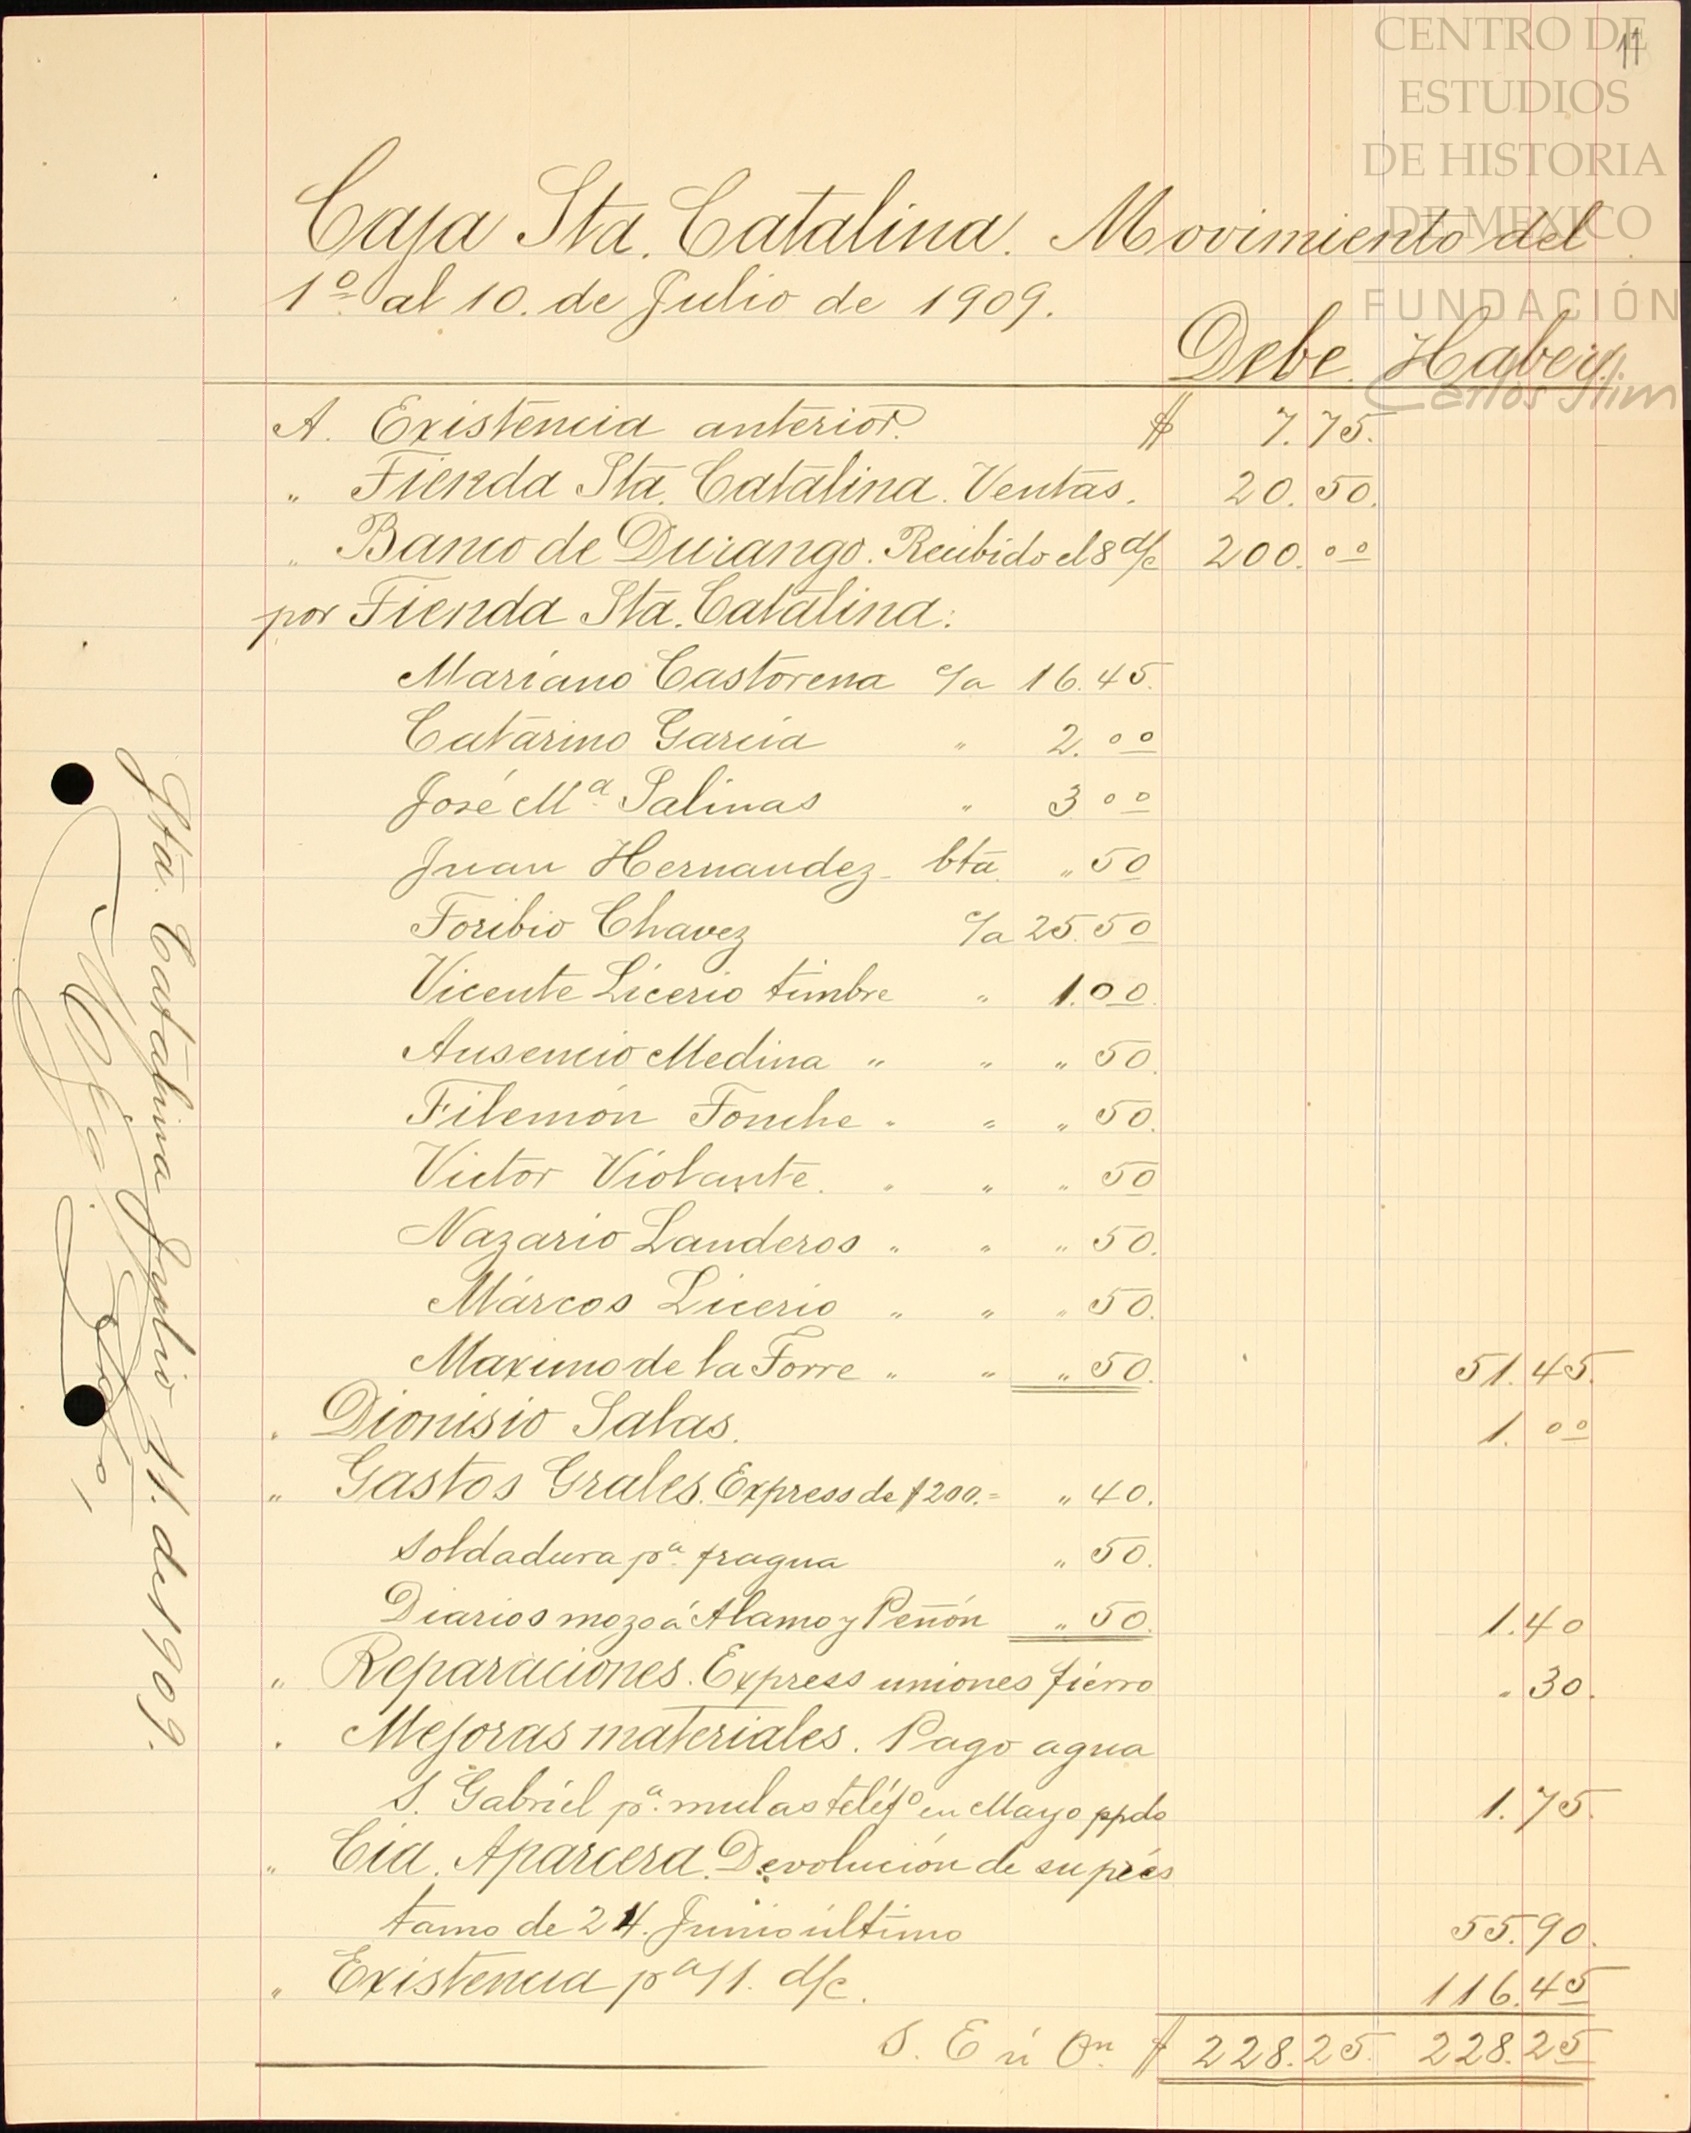 11
CENTRO DE
ESTUDIOS
DE HISTORIA
DE MEXICO
FUNDACIÓN
Carlos Slim
Caja Sta. Catalina. Movimiento del
1º al 10. de Julio de 1909.
Debe. Haber.
A. Existencia anterior. $ 7.75.
" Tienda Sta. Catalina. Ventas. 20.50.
" Banco de Durango. Recibido el 8 d/c 200.00
por Tienda Sta. Catalina:
Mariano Castorena c/a 16.45.
Catarino García " 2.00
José Mª Salinas " 3 00
Juan Hernandez bta. " 50
Toribio Chavez c/a 25.50
Vicente Licerio timbre " 1.00.
Ausencio Medina " " " 50.
Filemón Fonche " " " 50.
Victor Violante. " " " 50
Nazario Landeros " " " 50.
Márcos Licerio " " " 50.
Maximo de la Torre " " " 50. 51.45.
" Dionisio Salas. 1.00
" Gastos Grales. Express de $200.= " 40.
Soldadura pª fragua " 50.
Diarios mozo á Alamo y Peñón " 50. 1.40
" Reparaciones. Express uniones fierro " 30.
" Mejoras materiales. Pago agua
S. Gabriel pª mulas teléfº en Mayo ppdo 1.75.
" Cia. Aparcera. Devolución de su prés
tamo de 24. Junio último 55.90.
" Existencia pª 11. d/c. 116.45
S. E ú On. $ 228.25. 228.25
Sta. Catalina Julio 11. de 1909.